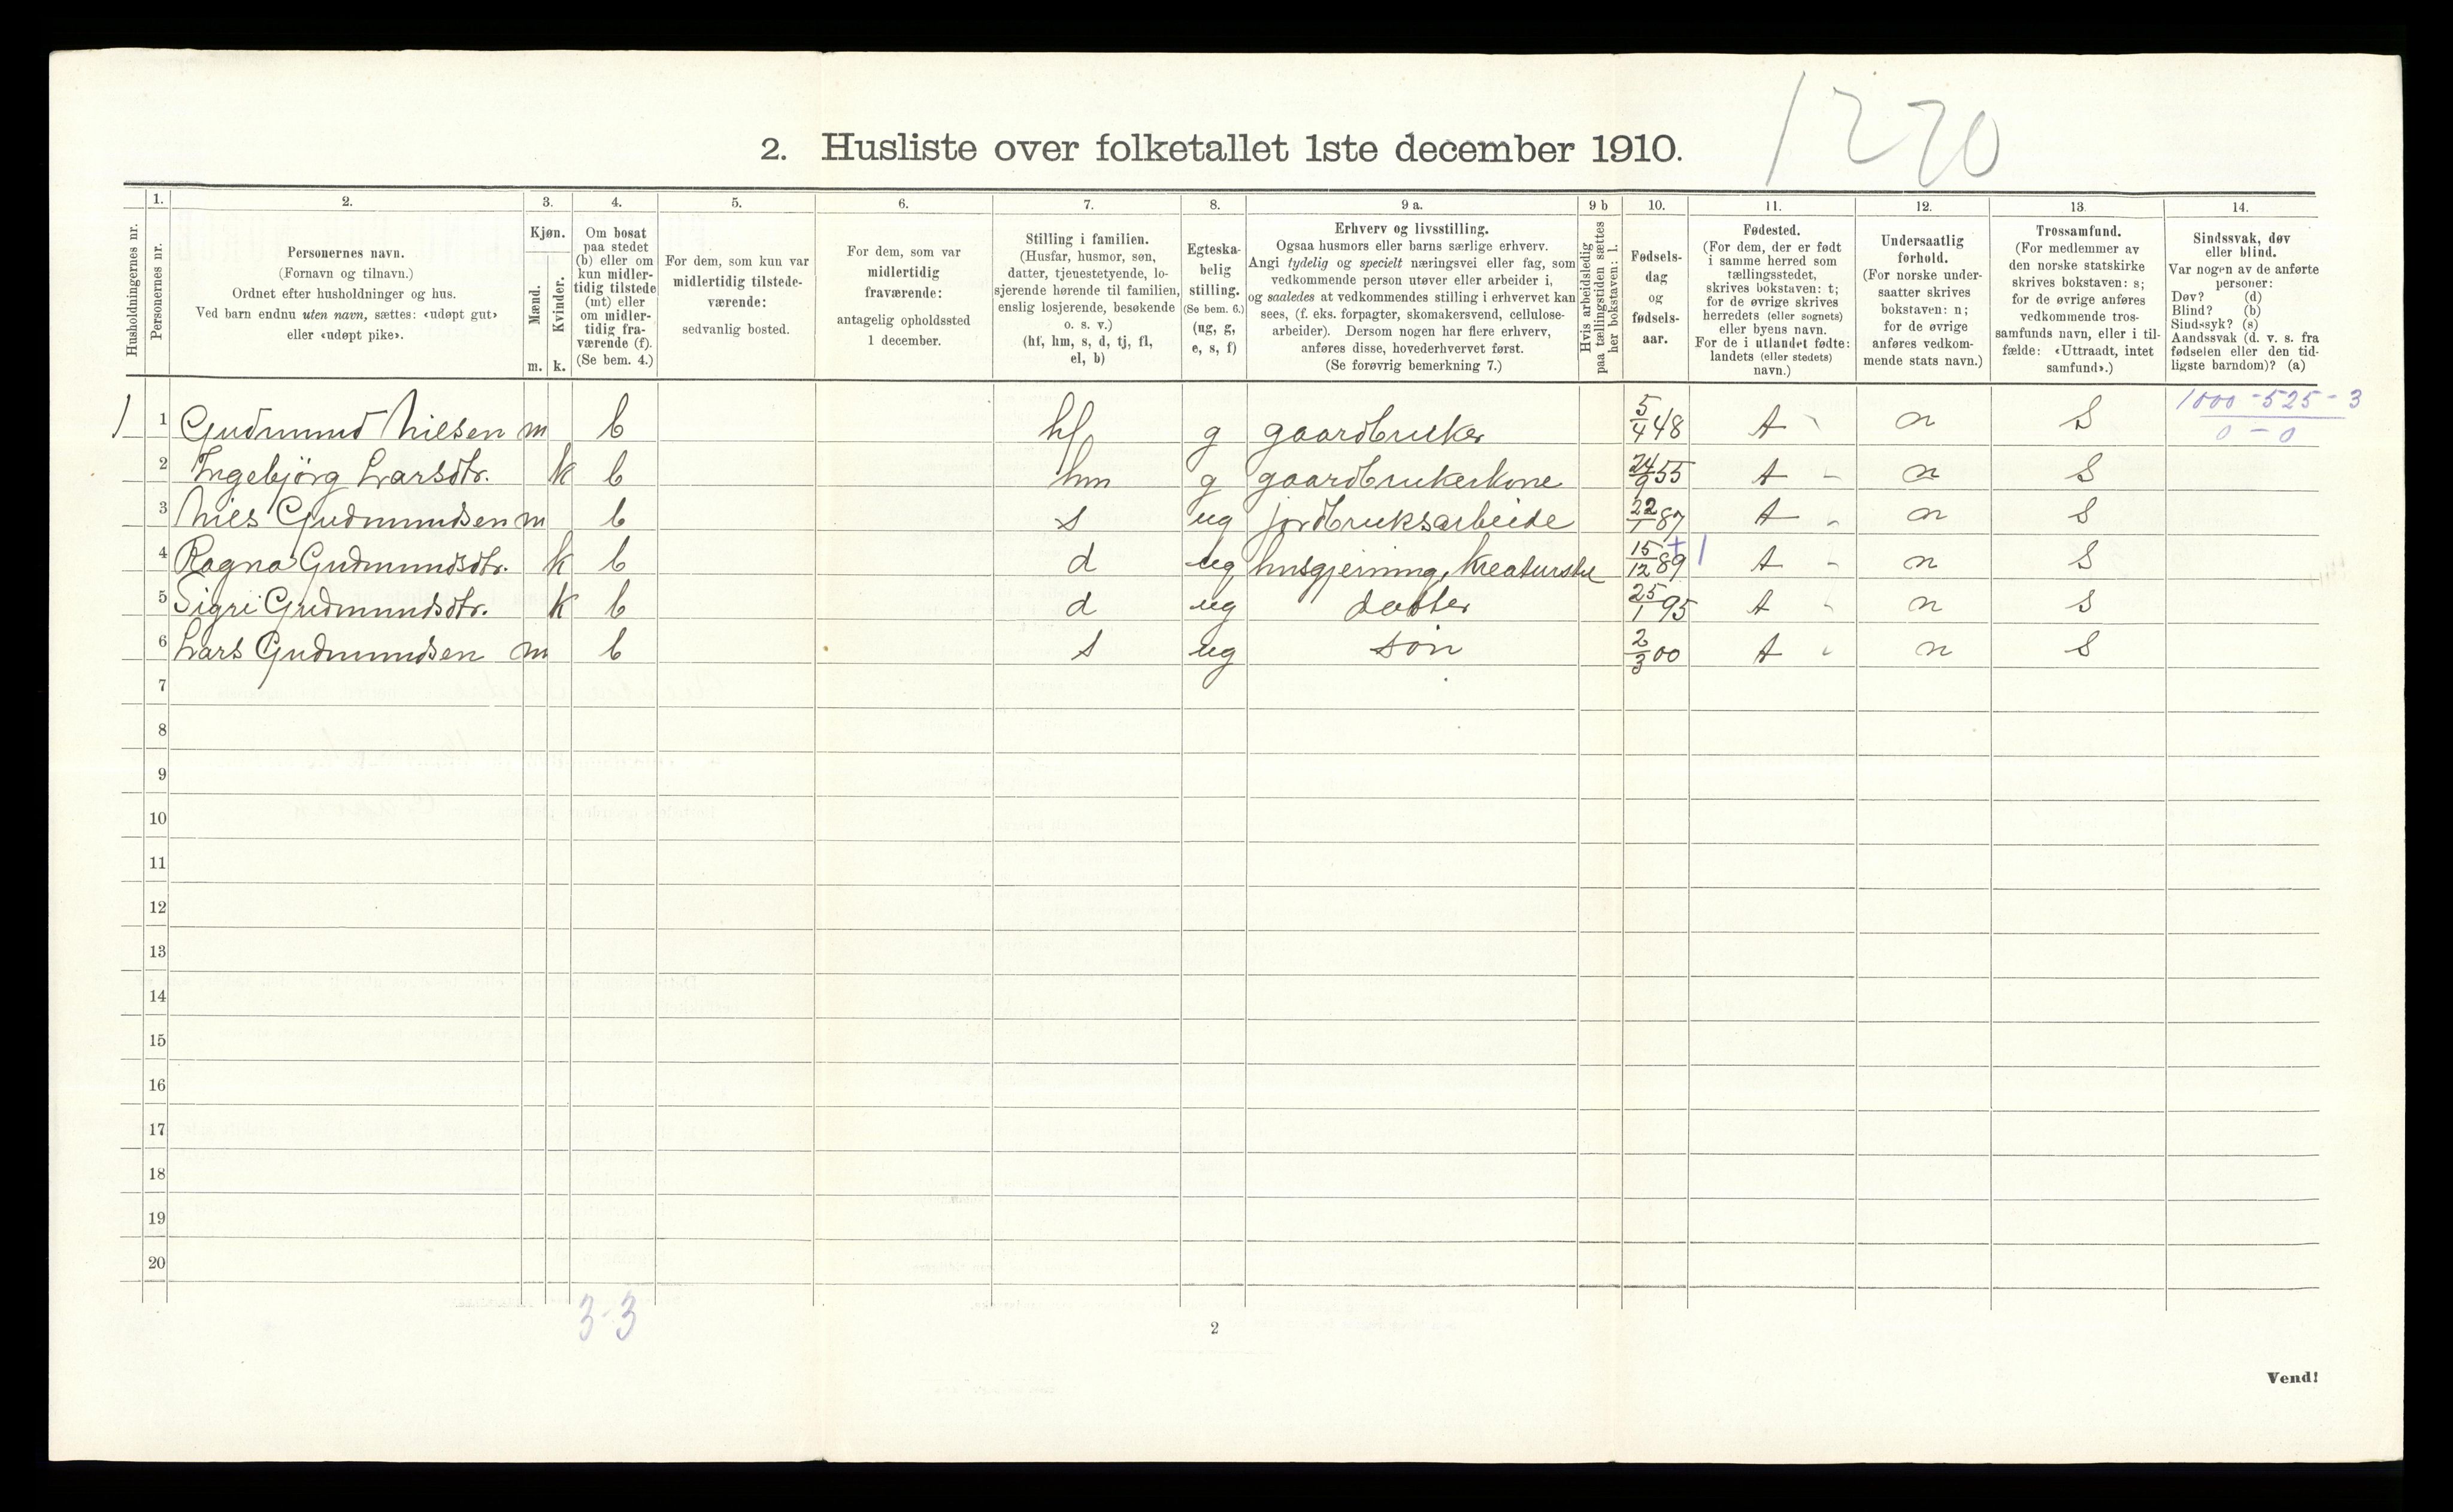 1270
2. Husliste over folketallet 1ste december 1910.
Husholdningernes nr.
1.
Personernes nr.
2.
Personernes navn.
(Fornavn og tilnavn.)
Ordnet efter husholdninger og hus.
Ved barn endnu uten navn, sættes: «udøpt gut»
eller «udøpt pike».
3.
Kjøn.
Mænd.
Kvinder.
m. k.
4.
Om bosat
paa stedet
(b) eller om
kun midler-
tidig tilstede
(mt) eller
om midler-
tidig fra-
værende (f).
(Se bem. 4.)
5.
For dem, som kun var
midlertidig tilstede-
værende:
sedvanlig bosted.
6.
For dem, som var
midlertidig
fraværende:
antagelig opholdssted
1 december.
7.
Stilling i familien.
(Husfar, husmor, søn,
datter, tjenestetyende, lo-
sjerende hørende til familien,
enslig losjerende, besøkende
o. s. v.)
(hf, hm, s, d, tj, fl,
el, b)
8.
Egteska-
belig
stilling.
(Se bem. 6.)
(ug, g,
e, s, f)
9 a.
Erhverv og livsstilling.
Ogsaa husmors eller barns særlige erhverv.
Angi tydelig og specielt næringsvei eller fag, som
vedkommende person utøver eller arbeider i,
og saaledes at vedkommendes stilling i erhvervet kan
sees, (f. eks. forpagter, skomakersvend, cellulose-
arbeider). Dersom nogen har flere erhverv,
anføres disse, hovederhvervet først.
(Se forøvrig bemerkning 7.)
9 b
Hvis arbeidsledig
paa tællingstiden sættes
her bokstaven: l.
10.
Fødsels-
dag
og
fødsels-
aar.
11.
Fødested.
(For dem, der er født
i samme herred som
tællingsstedet,
skrives bokstaven: t;
for de øvrige skrives
herredets (eller sognets)
eller byens navn.
For de i utlandet fødte:
landets (eller stedets)
navn.)
12.
Undersaatlig
forhold.
(For norske under-
saatter skrives
bokstaven: n;
for de øvrige
anføres vedkom-
mende stats navn.)
13.
Trossamfund.
(For medlemmer av
den norske statskirke
skrives bokstaven: s;
for de øvrige anføres
vedkommende tros-
samfunds navn, eller i til-
fælde: «Uttraadt, intet
samfund».)
14.
Sindssvak, døv
eller blind.
Var nogen av de anførte
personer:
Døv? (d)
Blind? (b)
Sindssyk? (s)
Aandssvak (d. v. s. fra
fødselen eller den tid-
ligste barndom)? (a)
1 1 Gudmund Nilsen m b hf g gaardbruker 5/4 48 t n S 1000 - 525 - 3
0 - 0
2 Ingebjörg Larsdtr. k b hm g gaardbrukerkone 24/9 55 t - n S
3 Nils Gudmundsen m b s ug jordbruksarbeide 22/1 87 t - n S
4 Ragna Gudmundsdtr. k b d ug husgjerning, kreaturstel 15/12 89 + 1 t - n S
5 Sigri Gudmundsdtr. k b d ug datter 25/1 95 t - n S
6 Lars Gudmundsen m b s ug sön 2/3 00 t n S
7
8
9
10
11
12
13
14
15
16
17
18
19
20
3-3
2
Vend!